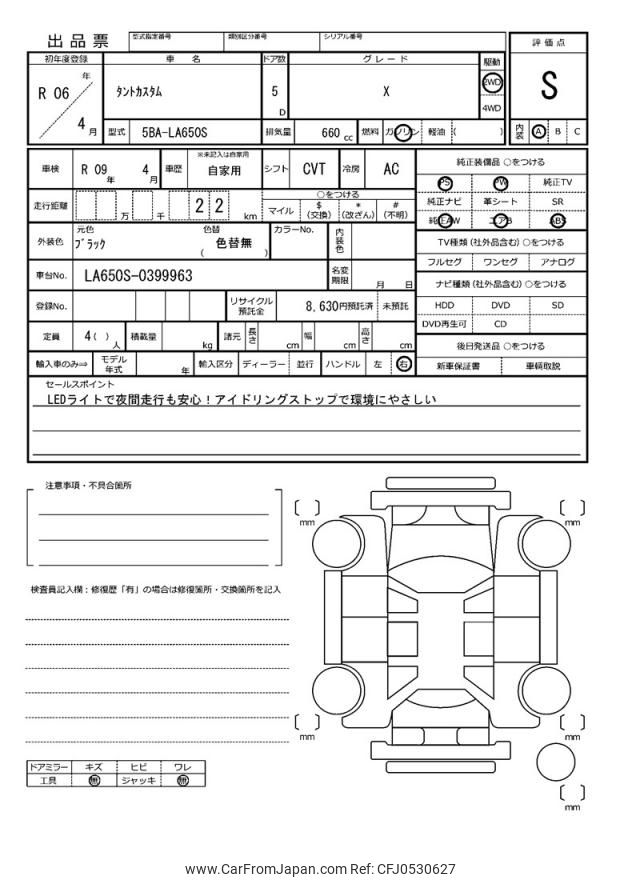 出品票
型式指定番号 類別区分番号 シリアル番号
評価点
S
初年度登録 車名 ドア数 グレード 駆動
R 06 年 4 月
タントカスタム
5 D
X
2WD
4WD
型式 5BA-LA650S 排気量 660 cc 燃料 ガソリン 軽油 ( )
内装 A B C
車検 R 09 年 4 月 車歴 ※未記入は自家用 自家用 シフト CVT 冷房 AC
純正装備品 ○をつける
PS PW 純正TV
純正ナビ 革シート SR
純正AW エアB ABS
走行距離 万 千 22 km
○をつける
マイル $(交換) *(改ざん) #(不明)
外装色 元色 ブラック 色替 色替無 ( )
カラーNo. 内装色
TV種類(社外品含む)○をつける
フルセグ ワンセグ アナログ
車台No. LA650S-0399963 名変期限 月 日
ナビ種類(社外品含む)○をつける
HDD DVD SD
DVD再生可 CD
登録No. リサイクル預託金 8,630円預託済 未預託
定員 4( ) 人 積載量 kg 諸元 長さ cm 幅 cm 高さ cm
後日発送品 ○をつける
新車保証書 車輌取説
輸入車のみ⇒ モデル年式 年 輸入区分 ディーラー 並行 ハンドル 左 右
セールスポイント
LEDライトで夜間走行も安心!アイドリングストップで環境にやさしい
注意事項・不具合箇所
検査員記入欄:修復歴「有」の場合は修復箇所・交換箇所を記入
mm
mm
mm
mm
mm
ドアミラー キズ ヒビ ワレ
工具 無 ジャッキ 無
www.CarFromJapan.com Ref: CFJ0530627